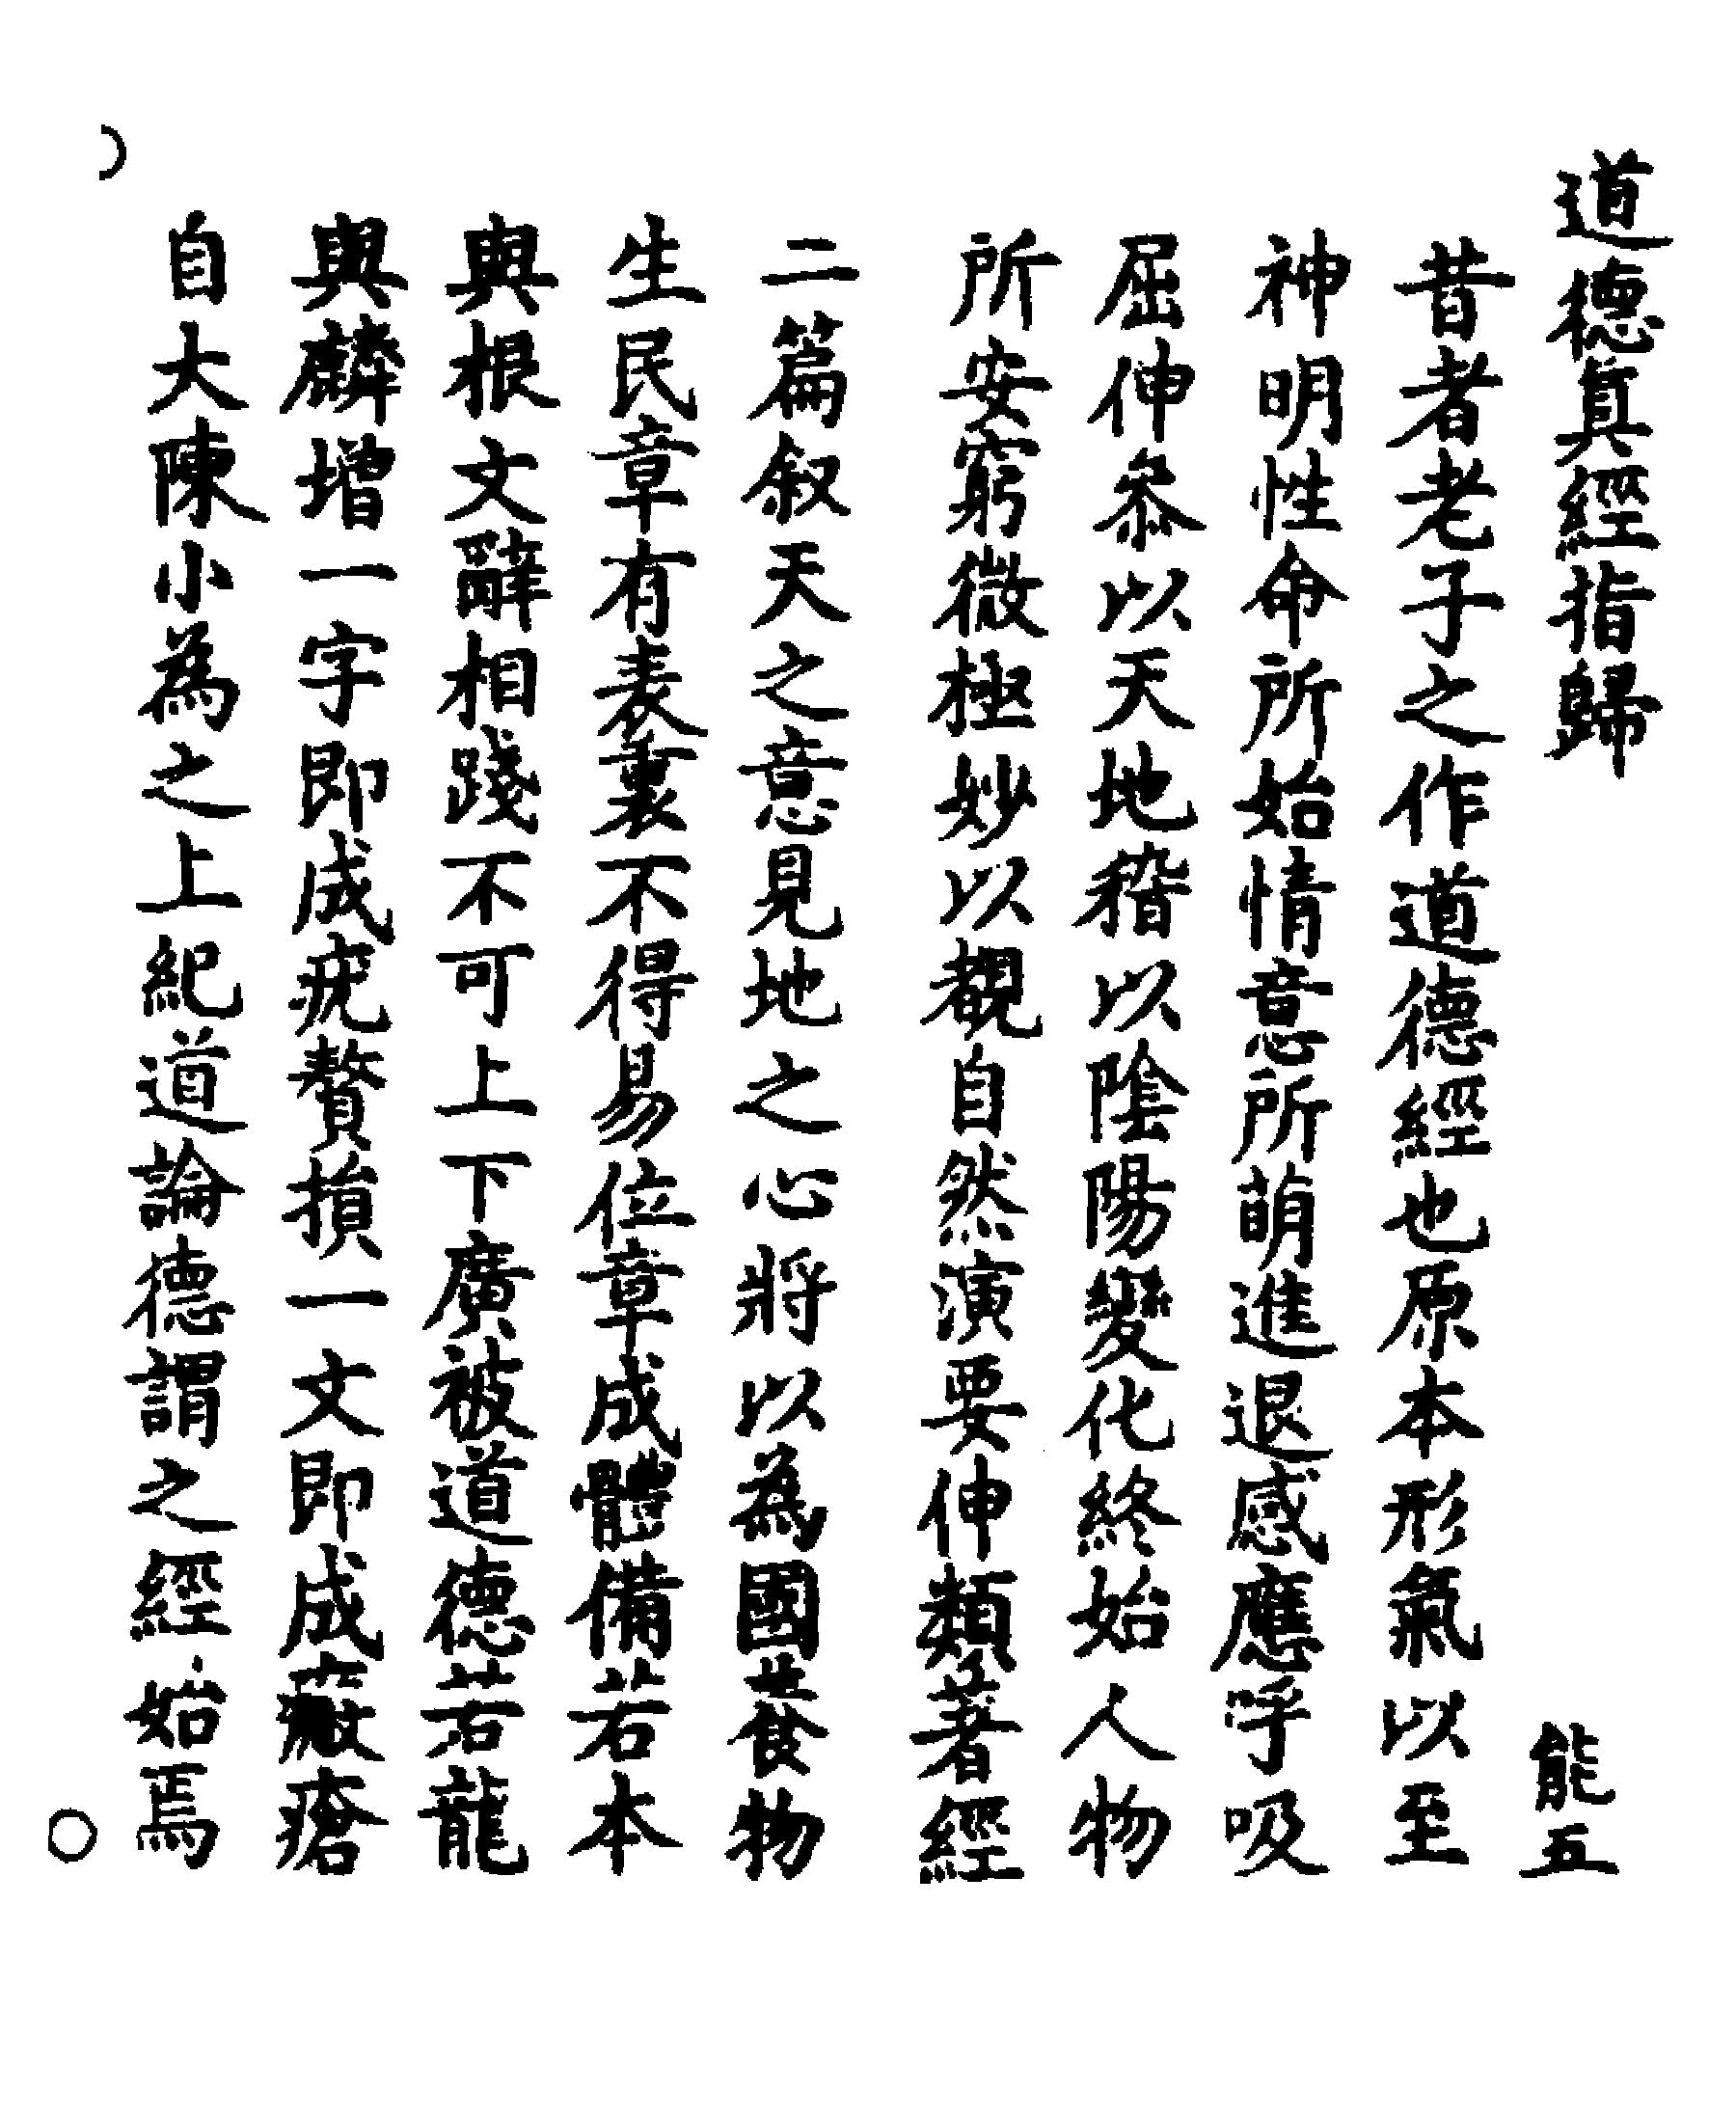 道德真經指歸 能五
昔者老子之作道德經也原本形氣以至
神明性命所始情意所萌進退感應呼吸
屈伸叅以天地稽以陰陽變化終始人物
所安窮微極妙以覩自然演要伸類著經
二篇叙天之意見地之心將以為國養物
生民章有表裏不得易位章成體備若本
與根文辭相踐不可上下廣被道德若龍
與麟增一字即成疣贅損一文即成瘢瘡
自大陳小為之上紀道論德謂之經始焉